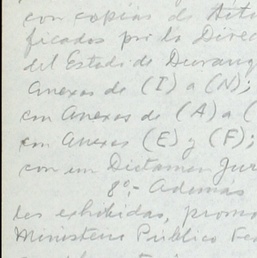 con copias de
ficados por la Direc
del Estado de Durang
Anexos de (I) a (N);
con Anexos de (A) a (
con Anexos (E) y (F);
con un Dictamen Jur
8º.- Además
tes exhibidas, promo
Ministerio Público Fe